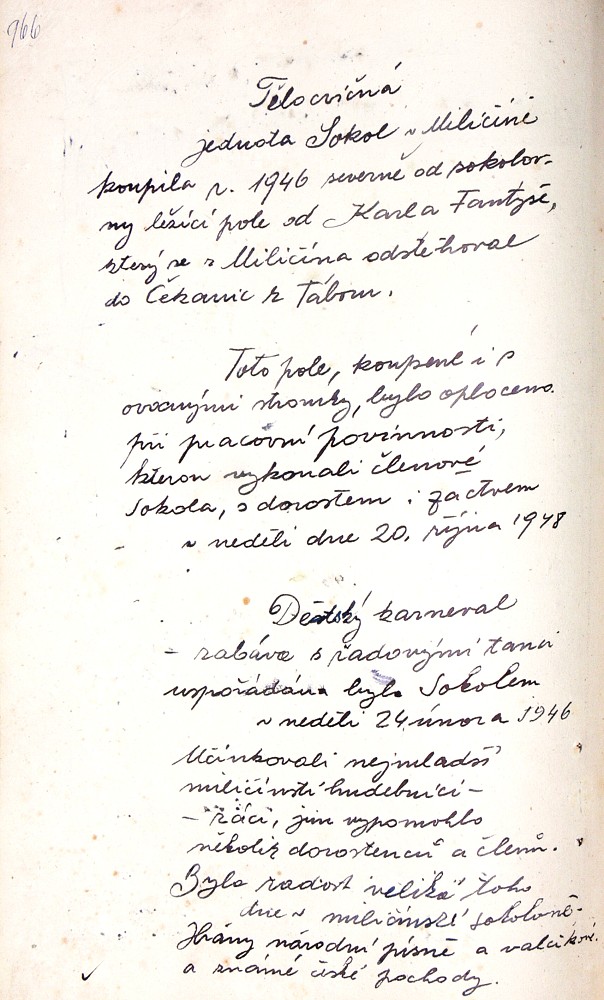 966
Tělocvičná
jednota Sokol v Miličíně
koupila r. 1946 severně od sokolov-
ny ležící pole od Karla Fantyše,
který se z Miličína odstěhoval
do Čekanic k Táboru.
Toto pole, koupené i s
ovocnými stromky, bylo oploceno
při pracovní povinnosti,
kterou vykonali členové
Sokola, s dorostem i žactvem
v neděli dne 20. října 1948
Dětský karneval
- zábava s řadovými tanci
uspořádána byla Sokolem
v neděli 24. února 1946
Účinkovali nejmladší
miličínští hudebníci -
- žáci, jim vypomohlo
několik dorostenců a členů.
Byla radost veliká toho
dne v miličínské sokolovně.
Hrány národní písně a valčíkové
a známé české pochody.